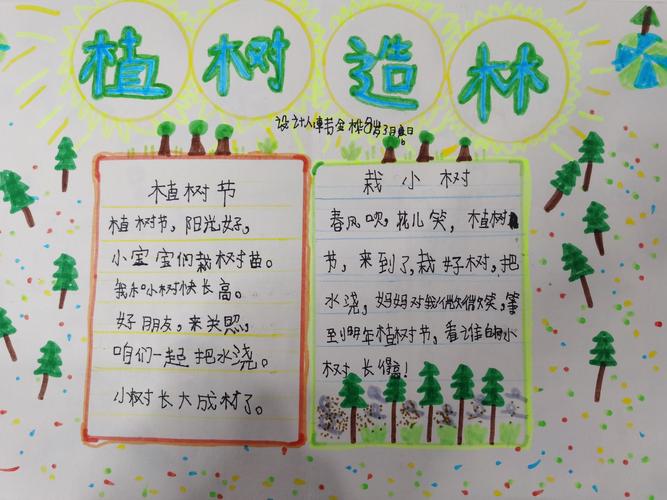 植树造林
设计人 8岁3月
植树节
植树节，阳光好，
小宝宝们栽树苗。
我和小树快长高。
好朋友，来关照，
咱们一起把水浇。
小树长大成材了。
栽小树
春风吹，花儿笑，植树
节，来到了，栽好树，把
水浇，妈妈对我微微笑，等
到明年植树节，看谁的小
树长得高！